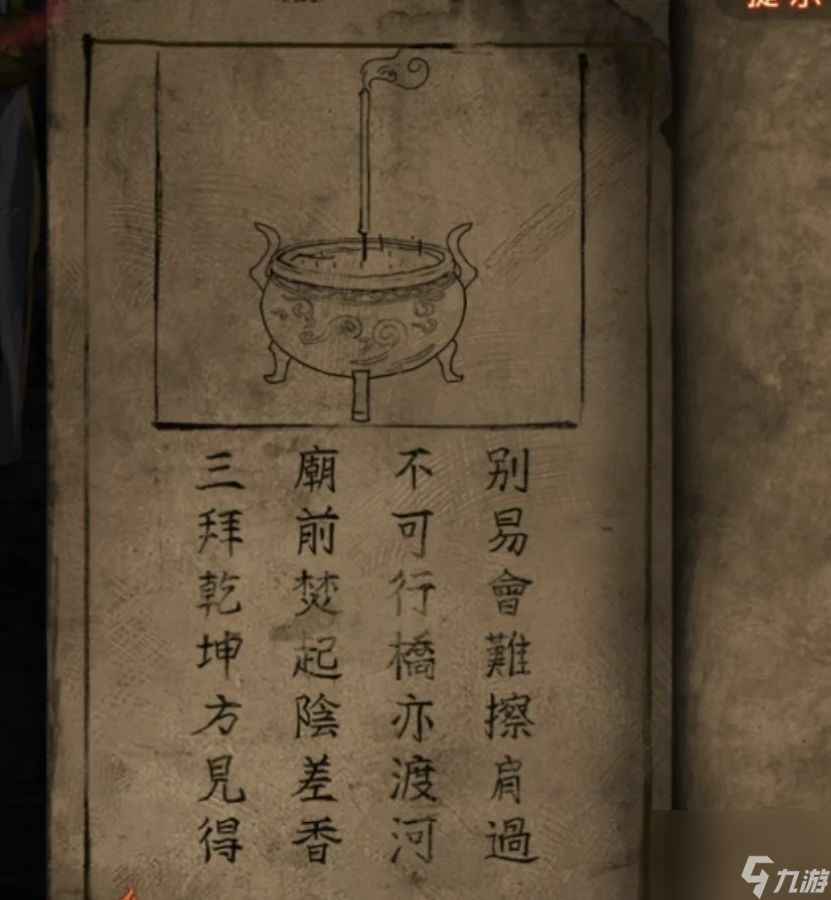 別易會難擦肩過
不可行橋亦渡河
廟前焚起陰差香
三拜乾坤方見得
提示
九游